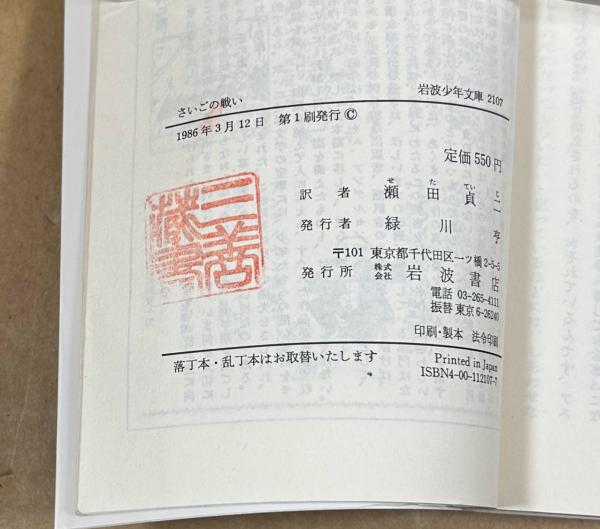 さいごの戦い
岩波少年文庫 2107
1986年3月12日 第1刷発行 ©
定価 550円
せ た てい じ
訳者 瀬田貞二
発行者 緑川亨
〒101 東京都千代田区一ツ橋2-5-5
発行所 株式会社 岩波書店
電話 03-265-4111
振替 東京 6-26240
印刷・製本 法令印刷
落丁本・乱丁本はお取替いたします
Printed in Japan
ISBN4-00-112107-7